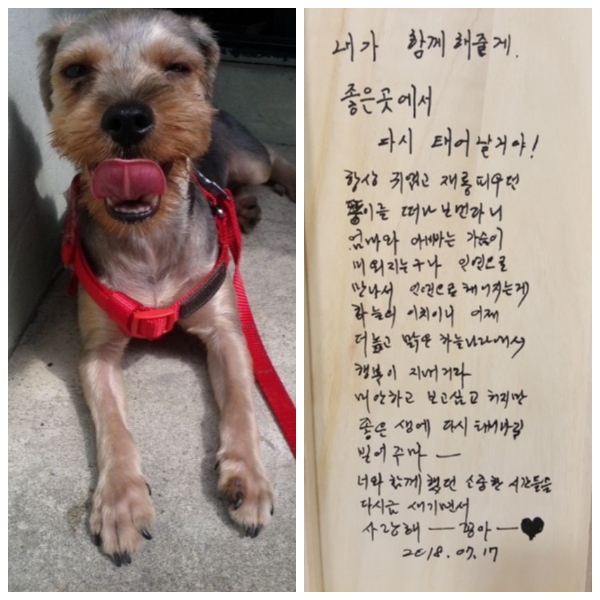 내가 함께 해줄게.
좋은곳에서
다시 태어날거야!
항상 귀엽고 재롱피우던
똥이를 떠나 보낸다니
엄마와 아빠는 가슴이
미워지는구나 인연으로
만나서 인연으로 헤어지는게
하늘의 이치이니 이제
더높고 맑은 하늘나라에서
행복이 지내거라
미안하고 보고싶고 하지만
좋은 생에 다시 태어나길
빌어주마 —
너와 함께 했던 소중한 시간들을
다시금 새기면서
사랑해 — 똥아 — ♥
2018.07.17